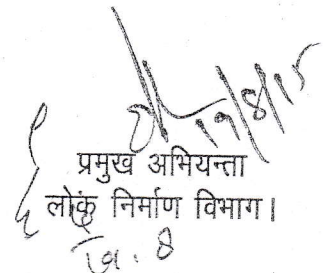 19/8/15
प्रमुख अभियन्ता
लोक निर्माण विभाग।